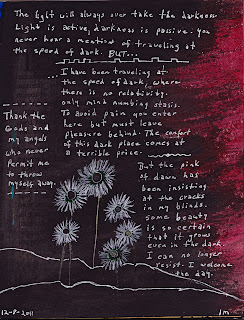 The light will always over take the darkness
Light is active, darkness is passive. You
never hear a mention of traveling at
the speed of dark. BUT...
...I have been traveling at
the speed of dark, where
there is no relativity.
only mind numbing stasis.
To avoid pain you enter
here but must leave
pleasure behind. The comfort
of this dark place comes at
a terrible price.
Thank the
Gods and
my angels
who never
Permit me
to throw
myself away.
But the pink
of dawn has
been insisting
at the cracks
in my blinds.
some beauty
is so certain
that it grows
even in the dark.
I can no longer
resist. I welcome
the day.
12-8-2011
JM